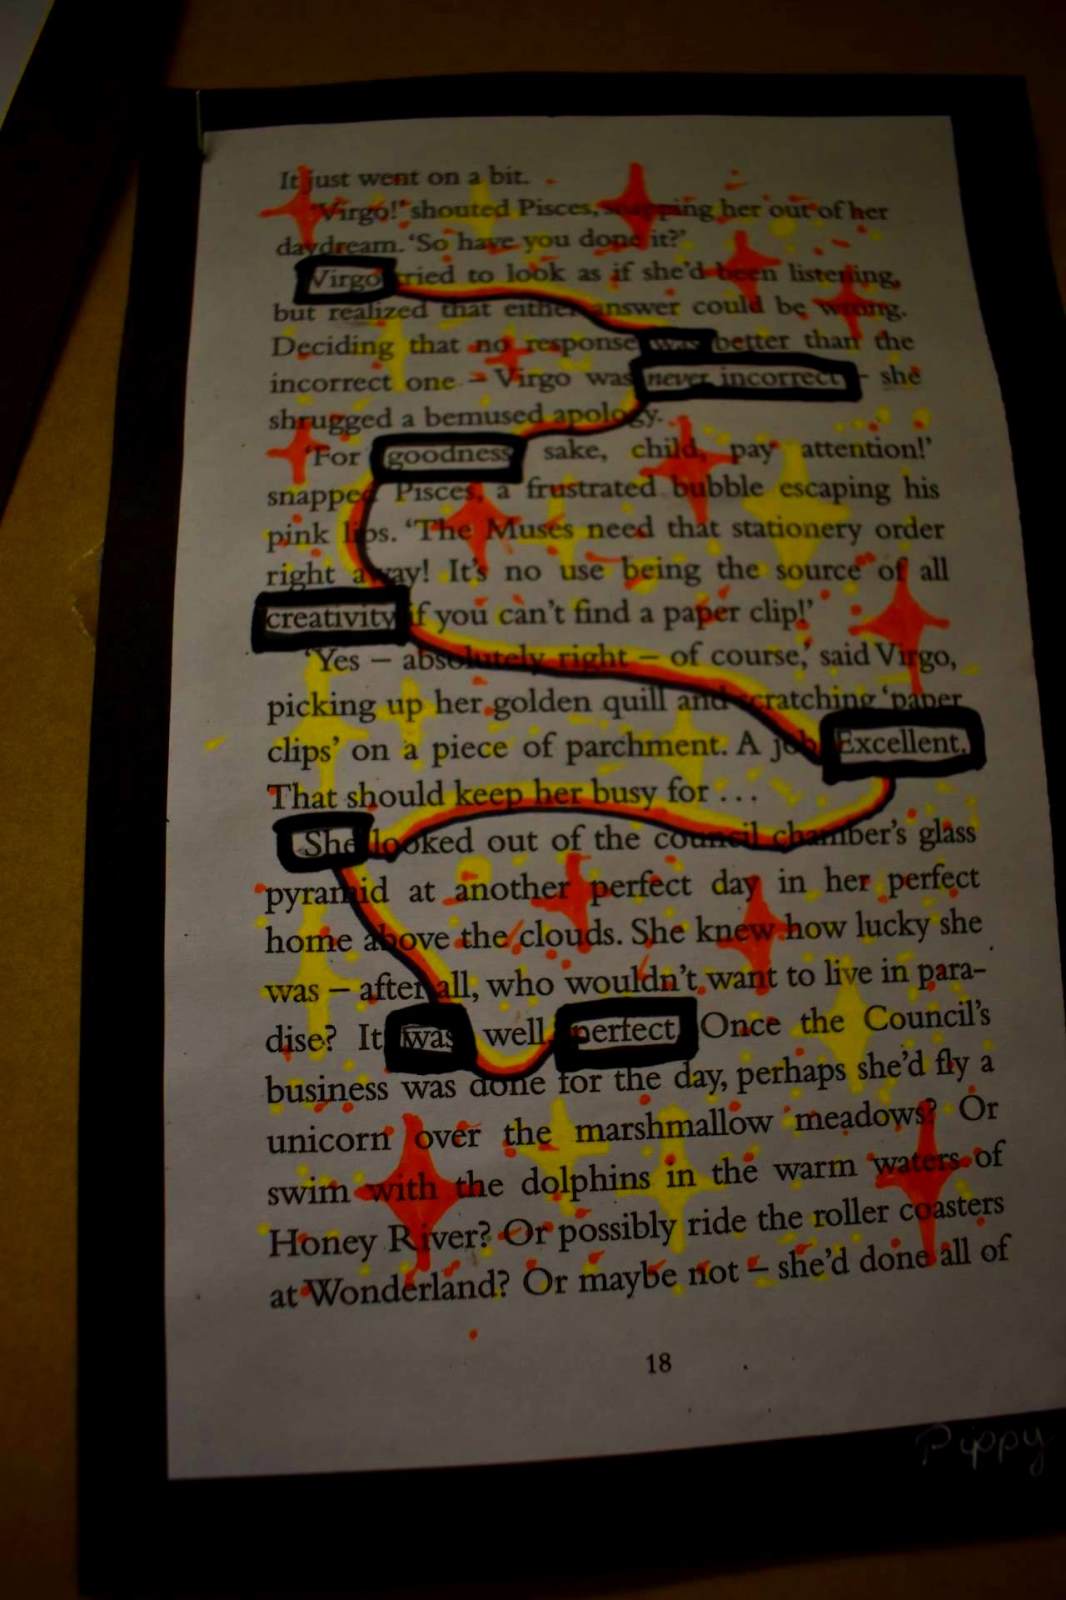 It just went on a bit.
'Virgo!' shouted Pisces, ping her out of her
daydream. 'So have you done it?'
Virgo tried to look as if she'd been listening,
but realized that either answer could be wrong.
Deciding that no response was better than the
incorrect one – Virgo was never incorrect – she
shrugged a bemused apology.
'For goodness sake, child, pay attention!'
snapped Pisces, a frustrated bubble escaping his
pink lips. 'The Muses need that stationery order
right away! It's no use being the source of all
creativity if you can't find a paper clip!'
'Yes – absolutely right – of course,' said Virgo,
picking up her golden quill and scratching 'paper
clips' on a piece of parchment. A job. Excellent.
That should keep her busy for ...
She looked out of the council chamber's glass
pyramid at another perfect day in her perfect
home above the clouds. She knew how lucky she
was – after all, who wouldn't want to live in para-
dise? It was well perfect. Once the Council's
business was done for the day, perhaps she'd fly a
unicorn over the marshmallow meadows? Or
swim with the dolphins in the warm waters of
Honey River? Or possibly ride the roller coasters
at Wonderland? Or maybe not – she'd done all of
18
Pippy